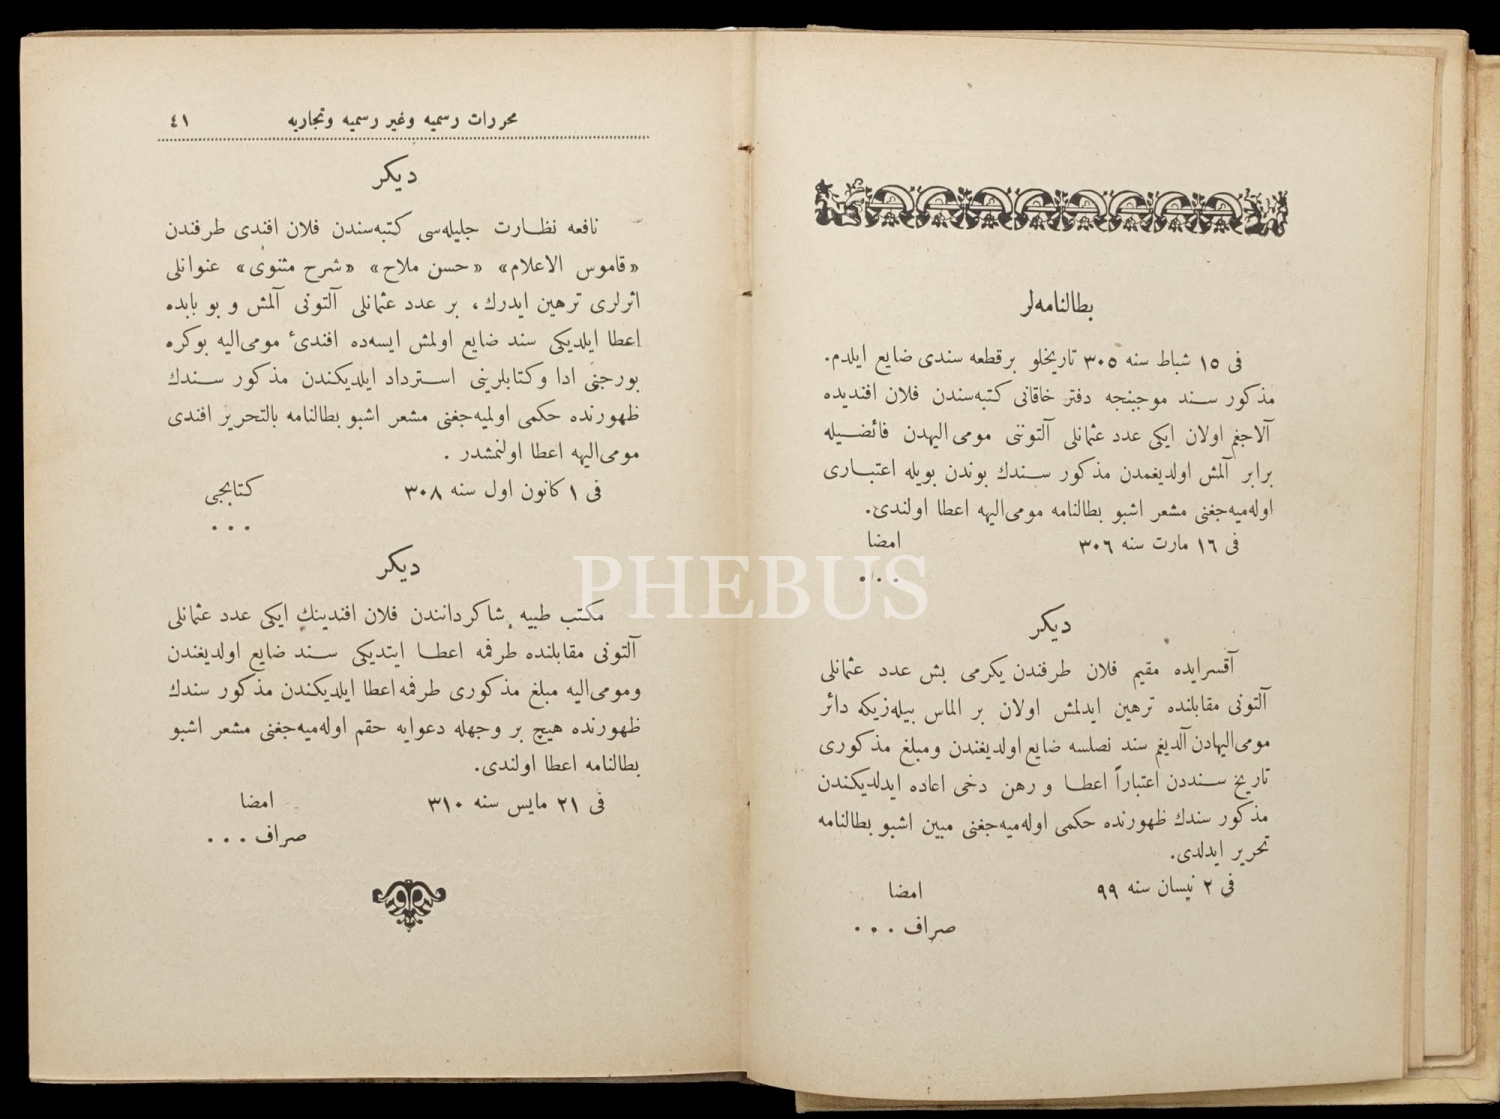 بطالنامه‌لر
فی ١٥ شباط سنه ٣٠٥ تاریخلو برقطعه سندی ضایع ایلدم.
مذکور سـند موجبنجه دفتر خاقانی کتبه‌سندن فلان افندیده
آلاجغم اولان ایکی عدد عثمانلی آلتوننی مومی‌الیهدن فائضیله
برابر آلمش اولدیغمدن مذکور سـندك بوندن بویله اعتباری
اوله‌میه‌جغنی مشعر اشبو بطالنامه مومی‌الیهه اعطا اولندی.
فی ١٦ مارت سنه ٣٠٦
امضا
دیکر
آقسرایده مقیم فلان طرفندن یکرمی بش عدد عثمانلی
آلتونی مقابلنده ترهین ایدلمش اولان بر الماس بیله‌زیکه دائر
مومی‌الیهادن آلدیغم سند نصلسه ضایع اولدیغندن ومبلغ مذکوری
تاریخ سـنددن اعتباراً اعطا و رهن دخی اعاده ایدلدیکندن
مذکور سندك ظهورنده حکمی اوله‌میه‌جغنی مبین اشبو بطالنامه
تحریر ایدلدی.
فی ٢ نیسان سنه ٩٩
امضا
صراف . . .
محررات رسمیه وغیر رسمیه وتجاریه
٤١
دیکر
نافعه نظـارت جلیله‌سی کتبه‌سندن فلان افندی طرفندن
«قاموس الاعلام» «حسن ملاح» «شرح مثنوی» عنوانلی
اثرلری ترهین ایدرك، بر عدد عثمانلی آلتونی آلمش و بو بابده
اعطا ایلدیکی سند ضایع اولمش ایسه‌ده افندیٔ مومی‌الیه بوکره
بورجنی ادا وکتابلرینی اسـترداد ایلدیکندن مذکور سـندك
ظهورنده حکمی اولمیه‌جغنی مشعر اشبو بطالنامه بالتحریر افندی
مومی‌الیهه اعطا اولنمشدر .
فی ١ کانون اول سنه ٣٠٨
کتابجی
. . .
دیکر
مکتب طبیه شاکردانندن فلان افندینك ایکی عدد عثمانلی
آلتونی مقابلنده طرفمه اعطـا ایتدیکی سـند ضایع اولدیغندن
ومومی‌الیه مبلغ مذکوری طرفمه اعطا ایلدیکندن مذکور سندك
ظهورنده هیچ بر وجهله دعوایه حقم اوله‌میه‌جغنی مشعر اشبو
بطالنامه اعطا اولندی.
فی ٢١ مایس سنه ٣١٠
امضا
صراف . . .
PHEBUS